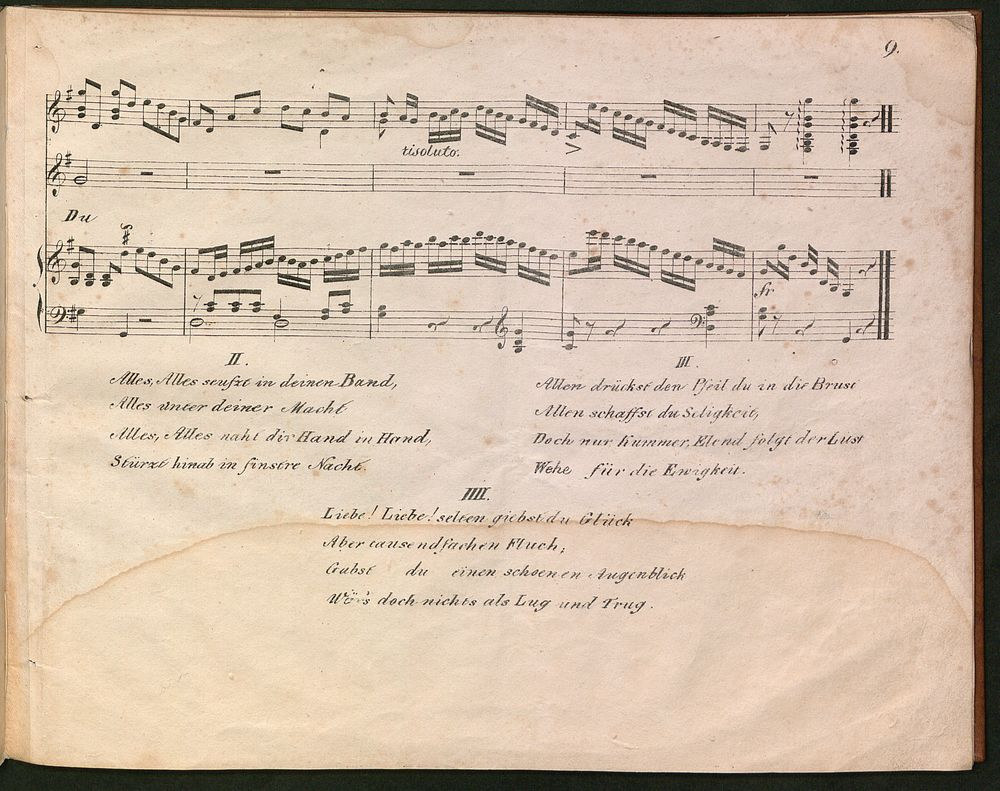 9.
risoluto.
Du
fr
II.
Alles, Alles seufzt in deinen Band,
Alles unter deiner Macht
Alles, Alles naht dir Hand in Hand,
Stürzt hinab in finstre Nacht.
III.
Allen drückst den Pfeil du in die Brust
Allen schaffst du Seligkeit,
Doch nur Kummer, Elend folgt der Lust
Wehe für die Ewigkeit.
IIII.
Liebe! Liebe! selten giebst du Glück
Aber tausendfachen Fluch;
Gabst du einen schoenen Augenblick
Wör's doch nichts als Lug und Trug.